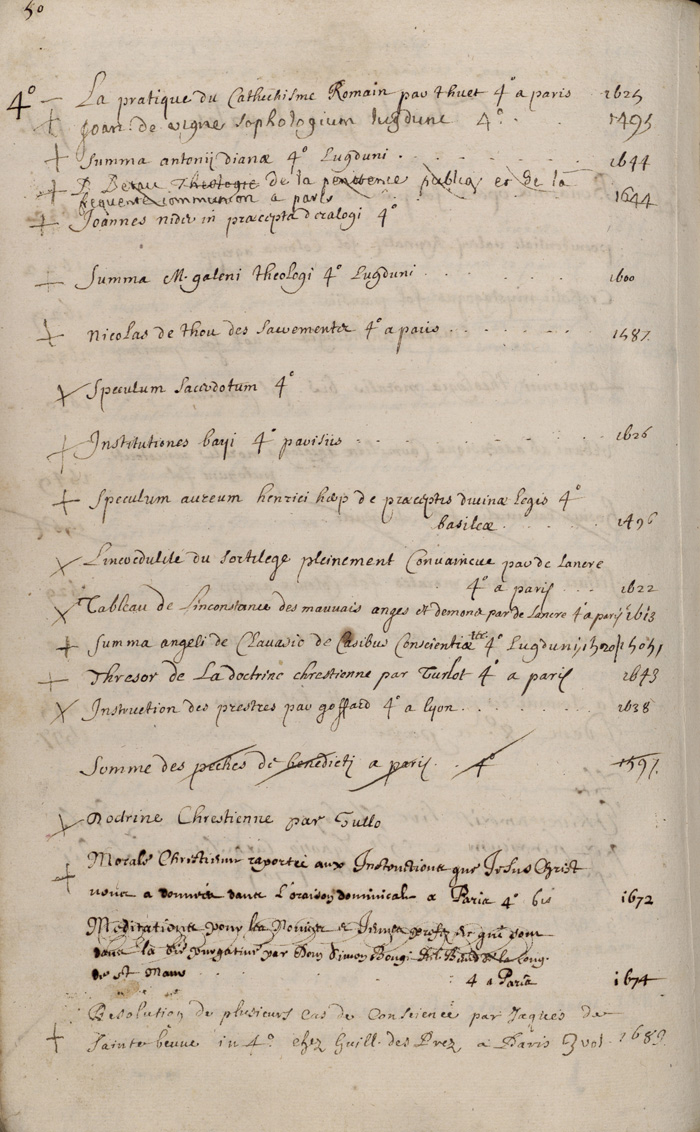 50
4° La pratique du Cathechisme Romain par thuet 4° a paris 1625
Joan. de vigne sophologium lugdune 4°. 1495
Summa antonij dianæ 4° Lugduni. 1644
de la penitence publiq et de la
frequente communion a paris 1644
Joannes nider in præcepta decalogi 4°
Summa M. galeni theologi 4° Lugduni 1600
Nicolas de thou des sacrements 4° a paris 1587
Speculum sacerdotum 4°
Institutiones bayi 4° parisiis 1626
Speculum aureum henrici hœp de præceptis divinæ legis 4°
basileæ 1496
Lincredulite du sortilege pleinement convaincue par de lancre
4° a paris 1622
Tableau de linconstance des mauvais anges et demons par de lancre 4° a paris 1613
Summa angeli de Clavasio de Casibus Conscientiæ 4° Lugduni
Thresor de La doctrine chrestienne par Turlot 4° a paris 1643
Instruction des prestres par goffard 4° a lyon 1638
Somme des peches de benedicti a paris. 4° 1597.
Doctrine Chrestienne par Tullo
Morale Chrestienne raportée aux Instructions que Jesus Christ
nous a données dans l'oraison dominicale a Paris 4° bis 1672
Meditations pour les Novices et Jeunes profez et qui sont
dans la vie purgative par Dom Simon Bougi Rel. Bened. de la Cong.
de st Maur 4 a Paris 1674
Resolution de plusieurs cas de conscience par Jaques de
Sainte beuve in 4°. chez Guill. des Prez a Paris 3 vol. 1689.